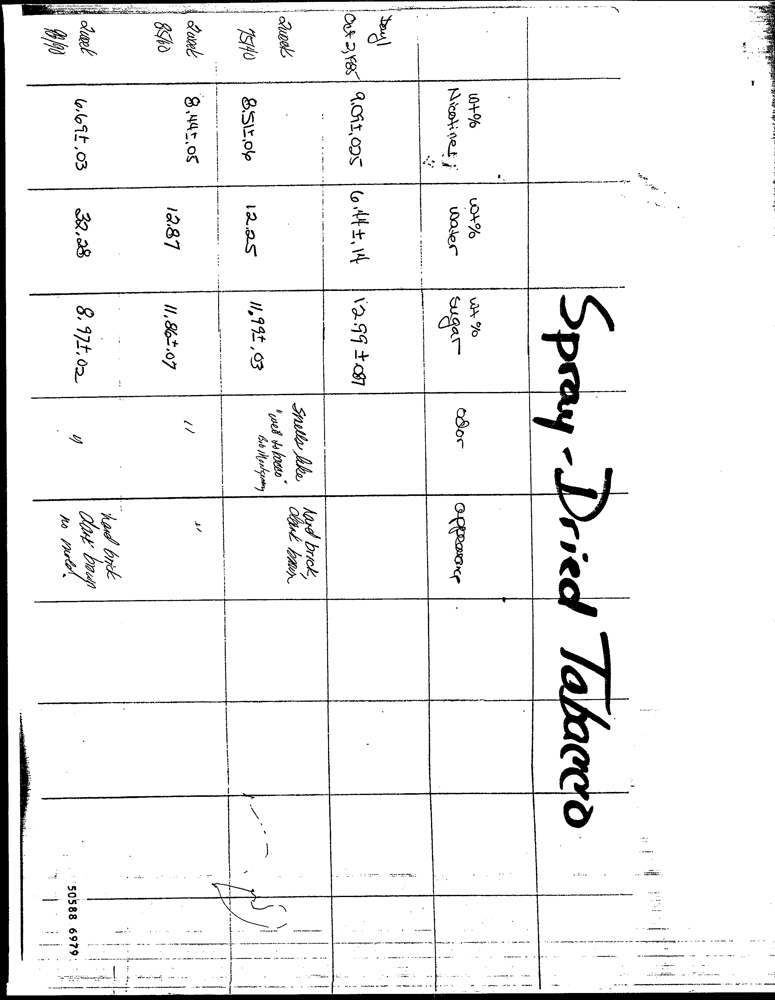 Spray-Dried Tabacco
wt% Nicotine wt% water wt% sugar odor appearance
Day 1
Oct 2, 1985 9.09±.025 6.44±.14 12.99±.087
2 week
75/40 8.51±.06 12.25 11.99±.03 Smells like "wet tobacco" hard brick, dark brown
2 week
85/40 8.44±.05 12.87 11.86±.07 " "
2 week 6.69±.03 32.28 8.97±.02 " hard brick
dark brown
no mold.
50588 6979